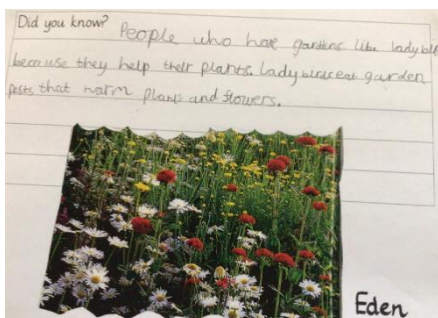 Did you know? People who have gardens like lady
because they help their plants. Lady birds eat garden
pests that harm plants and flowers.
Eden